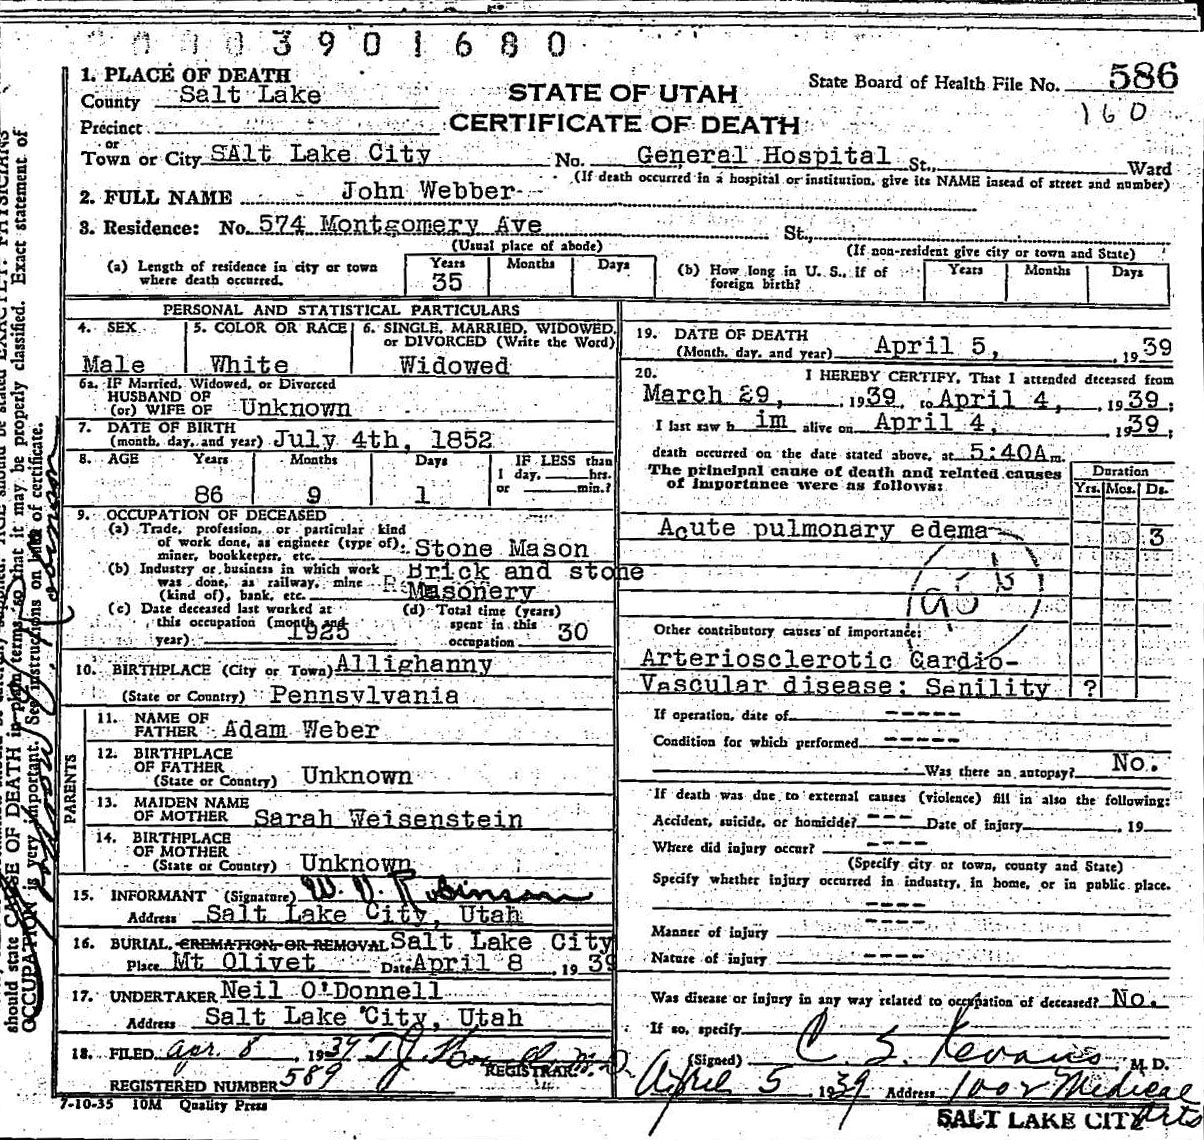 0003901680
1. PLACE OF DEATH
County Salt Lake
STATE OF UTAH
State Board of Health File No. 586
160
Precinct
CERTIFICATE OF DEATH
or
Town or City SAlt Lake City No. General Hospital St., Ward
(If death occurred in a hospital or institution, give its NAME insead of street and number)
2. FULL NAME John Webber
3. Residence: No. 574 Montgomery Ave St.,
(Usual place of abode) (If non-resident give city or town and State)
(a) Length of residence in city or town where death occurred. Years 35 Months Days
(b) How long in U. S., if of foreign birth? Years Months Days
PERSONAL AND STATISTICAL PARTICULARS
4. SEX 5. COLOR OR RACE 6. SINGLE, MARRIED, WIDOWED,
or DIVORCED (Write the Word)
Male White Widowed
6a. IF Married, Widowed, or Divorced
HUSBAND OF
(or) WIFE OF Unknown
7. DATE OF BIRTH
(month, day, and year) July 4th, 1852
8. AGE Years Months Days IF LESS than
1 day, hrs.
or min.?
86 9 1
9. OCCUPATION OF DECEASED
(a) Trade, profession, or particular kind
of work done, as engineer (type of),
miner, bookkeeper, etc. Stone Mason
(b) Industry or business in which work
was done, as railway, mine
(kind of), bank, etc. Brick and stone
Masonery
(c) Date deceased last worked at
this occupation (month and
year) 1925
(d) Total time (years)
spent in this
occupation 30
10. BIRTHPLACE (City or Town) Allighanny
(State or Country) Pennsylvania
PARENTS
11. NAME OF
FATHER Adam Weber
12. BIRTHPLACE
OF FATHER
(State or Country) Unknown
13. MAIDEN NAME
OF MOTHER Sarah Weisenstein
14. BIRTHPLACE
OF MOTHER
(State or Country) Unknown
15. INFORMANT (Signature) W. D. Robinson
Address Salt Lake City, Utah
16. BURIAL, CREMATION OR REMOVAL Salt Lake City
Place Mt Olivet Date April 8, 1939
17. UNDERTAKER Neil O'Donnell
Address Salt Lake City, Utah
18. FILED Apr. 8, 1939 T. J. M. D.
REGISTRAR
REGISTERED NUMBER 589
7-10-35 10M Quality Press
19. DATE OF DEATH
(Month, day, and year) April 5, 1939
20. I HEREBY CERTIFY, That I attended deceased from
March 29, 1939, to April 4, 1939;
I last saw h im alive on April 4, 1939;
death occurred on the date stated above, at 5:40A m.
The principal cause of death and related causes
of importance were as follows:
Duration
Yrs. Mos. Ds.
Acute pulmonary edema 3
95 b
Other contributory causes of importance:
Arteriosclerotic Cardio-
Vascular disease: Senility ?
If operation, date of -----
Condition for which performed -----
Was there an autopsy? No.
If death was due to external causes (violence) fill in also the following:
Accident, suicide, or homicide? --- Date of injury , 19
Where did injury occur? ---
(Specify city or town, county and State)
Specify whether injury occurred in industry, in home, or in public place.
----
----
Manner of injury ----
Nature of injury ----
Was disease or injury in any way related to occupation of deceased? No.
If so, specify
(Signed) C. S. Kevans M. D.
April 5 1939 Address 1002 Medical
Arts
SALT LAKE CITY
should state CAUSE OF DEATH in plain terms, so that it may be properly classified. Exact statement of
OCCUPATION is very important. See instructions on back of certificate.